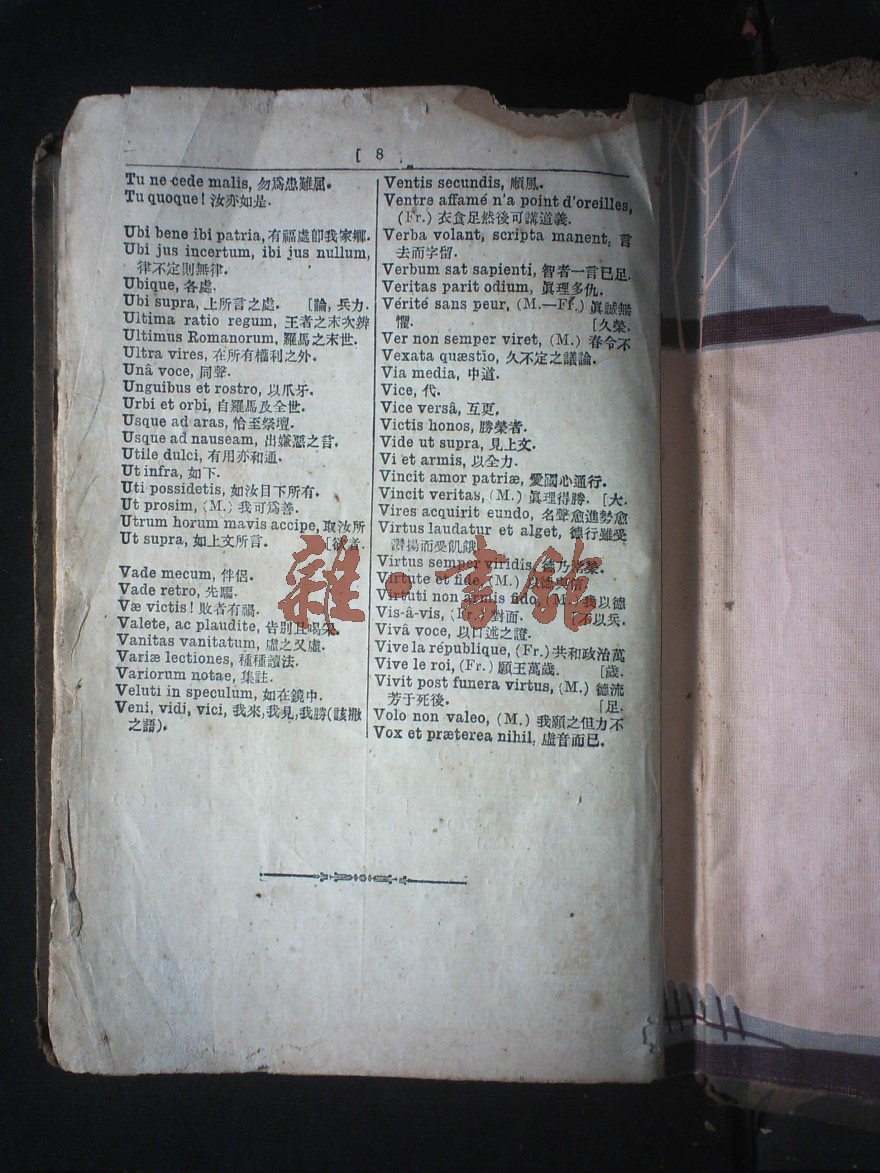 [ 8 ]
Tu ne cede malis, 勿爲患難屈.
Tu quoque! 汝亦如是.
Ubi bene ibi patria, 有福處卽我家鄉.
Ubi jus incertum, ibi jus nullum,
律不定則無律.
Ubique, 各處.
Ubi supra, 上所言之處. [論, 兵力.
Ultima ratio regum, 王者之末次辨
Ultimus Romanorum, 羅馬之末世.
Ultra vires, 在所有權利之外.
Unâ voce, 同聲.
Unguibus et rostro, 以爪牙.
Urbi et orbi, 自羅馬及全世.
Usque ad aras, 恰至祭壇.
Usque ad nauseam, 出嫌惡之言.
Utile dulci, 有用亦和通.
Ut infra, 如下.
Uti possidetis, 如汝目下所有.
Ut prosim, (M.) 我可爲善.
Utrum horum mavis accipe, 取汝所
Ut supra, 如上文所言. [欲者.
Vade mecum, 伴侶.
Vade retro, 先驅.
Væ victis! 敗者有禍.
Valete, ac plaudite, 告別且喝采.
Vanitas vanitatum, 虛之又虛.
Variæ lectiones, 種種讀法.
Variorum notae, 集註.
Veluti in speculum, 如在鏡中.
Veni, vidi, vici, 我來,我見,我勝(該撒
之語).
Ventis secundis, 順風.
Ventre affamé n'a point d'oreilles,
(Fr.) 衣食足然後可講道義.
Verba volant, scripta manent, 言
去而字留.
Verbum sat sapienti, 智者一言已足.
Veritas parit odium, 眞理多仇.
Vérité sans peur, (M.—Fr.) 眞誠無
懼. [久榮.
Ver non semper viret, (M.) 春令不
Vexata quæstio, 久不定之議論.
Via media, 中道.
Vice, 代.
Vice versâ, 互更.
Victis honos, 勝榮者.
Vide ut supra, 見上文.
Vi et armis, 以全力.
Vincit amor patriæ, 愛國心通行.
Vincit veritas, (M.) 眞理得勝. [大.
Vires acquirit eundo, 名聲愈進勢愈
Virtus laudatur et alget, 德行雖受
讚揚而受飢餓.
Virtus semper viridis, 德乃常榮.
Virtute et fide, (M.) 以德與信.
Virtuti non armis fido, (M.) 我以德
Vis-â-vis, (Fr.) 對面. [不以兵.
Vivâ voce, 以口述之證.
Vive la république, (Fr.) 共和政治萬
Vive le roi, (Fr.) 願王萬歲. [歲.
Vivit post funera virtus, (M.) 德流
芳于死後. [足.
Volo non valeo, (M.) 我願之但力不
Vox et præterea nihil, 虛音而已.
雜·書館